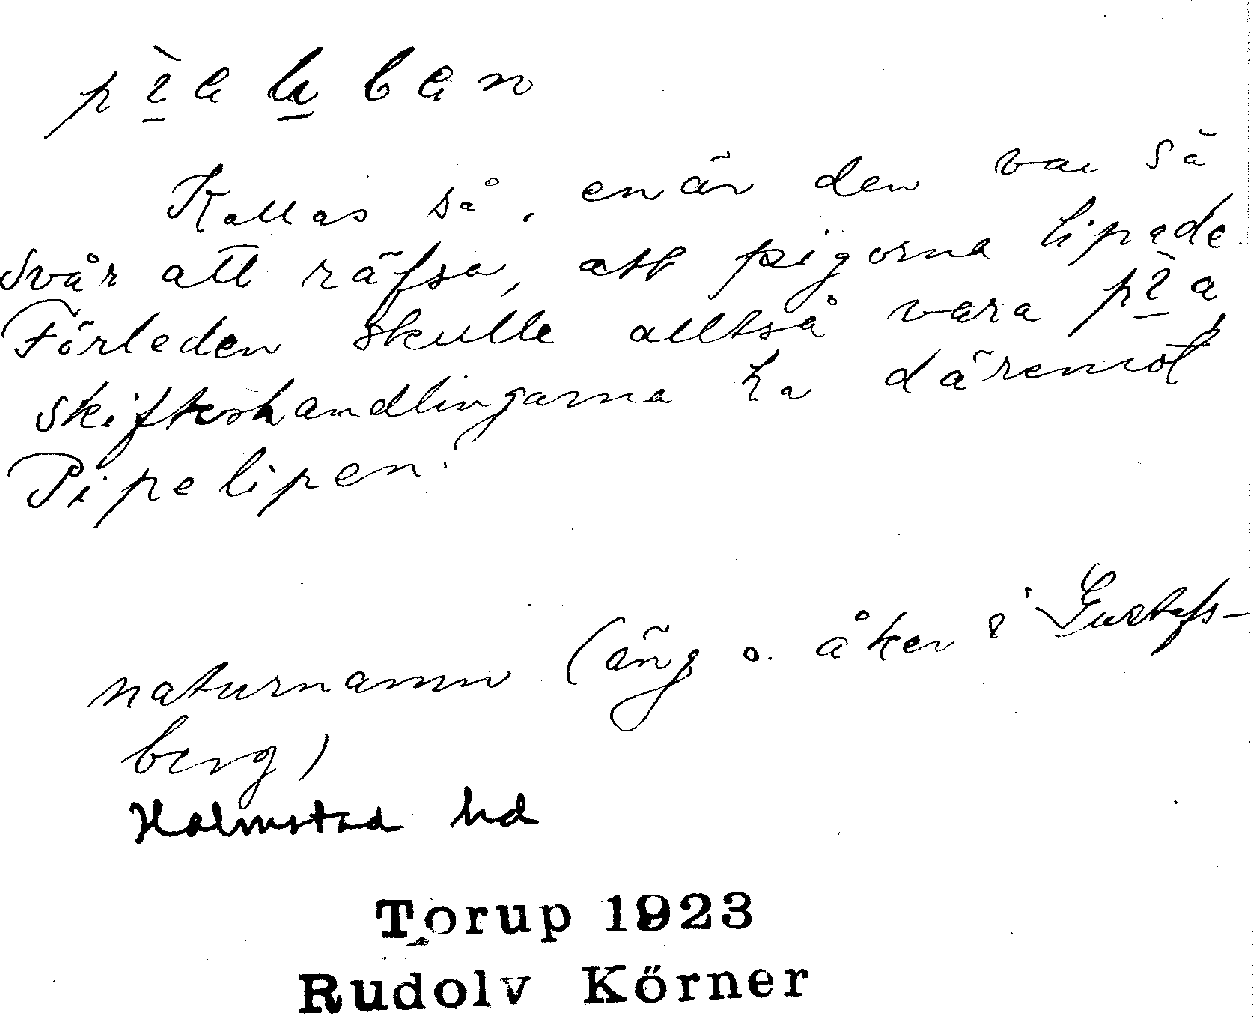 Kallas så, enär den var så
svår att räfsa, att pigorna lipade.
Förleden skulle alltså vara pìa
skifteshandlingarna ha däremot
Pipelipen.
naturnamn (äng o. åker i Gustafs-
berg)
Halmstad hd
Torup 1923
Rudolv Körner